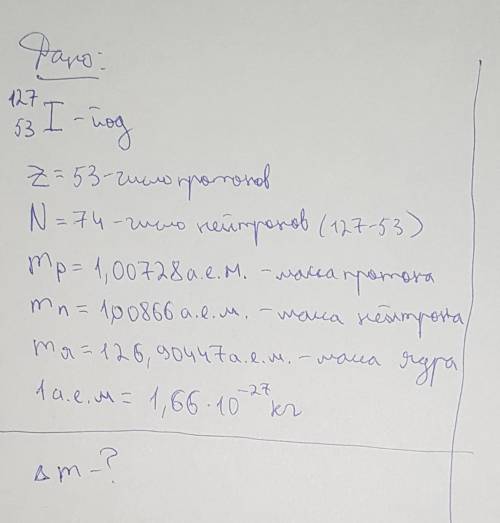 Дано:
127
53 I - йод
Z = 53 - число протонов
N = 74 - число нейтронов (127-53)
mp = 1,00728 а.е.м. - масса протона
mn = 1,00866 а.е.м. - масса нейтрона
mя = 126,90447 а.е.м. - масса ядра
1 а.е.м = 1,66 · 10⁻²⁷ кг
Δm - ?